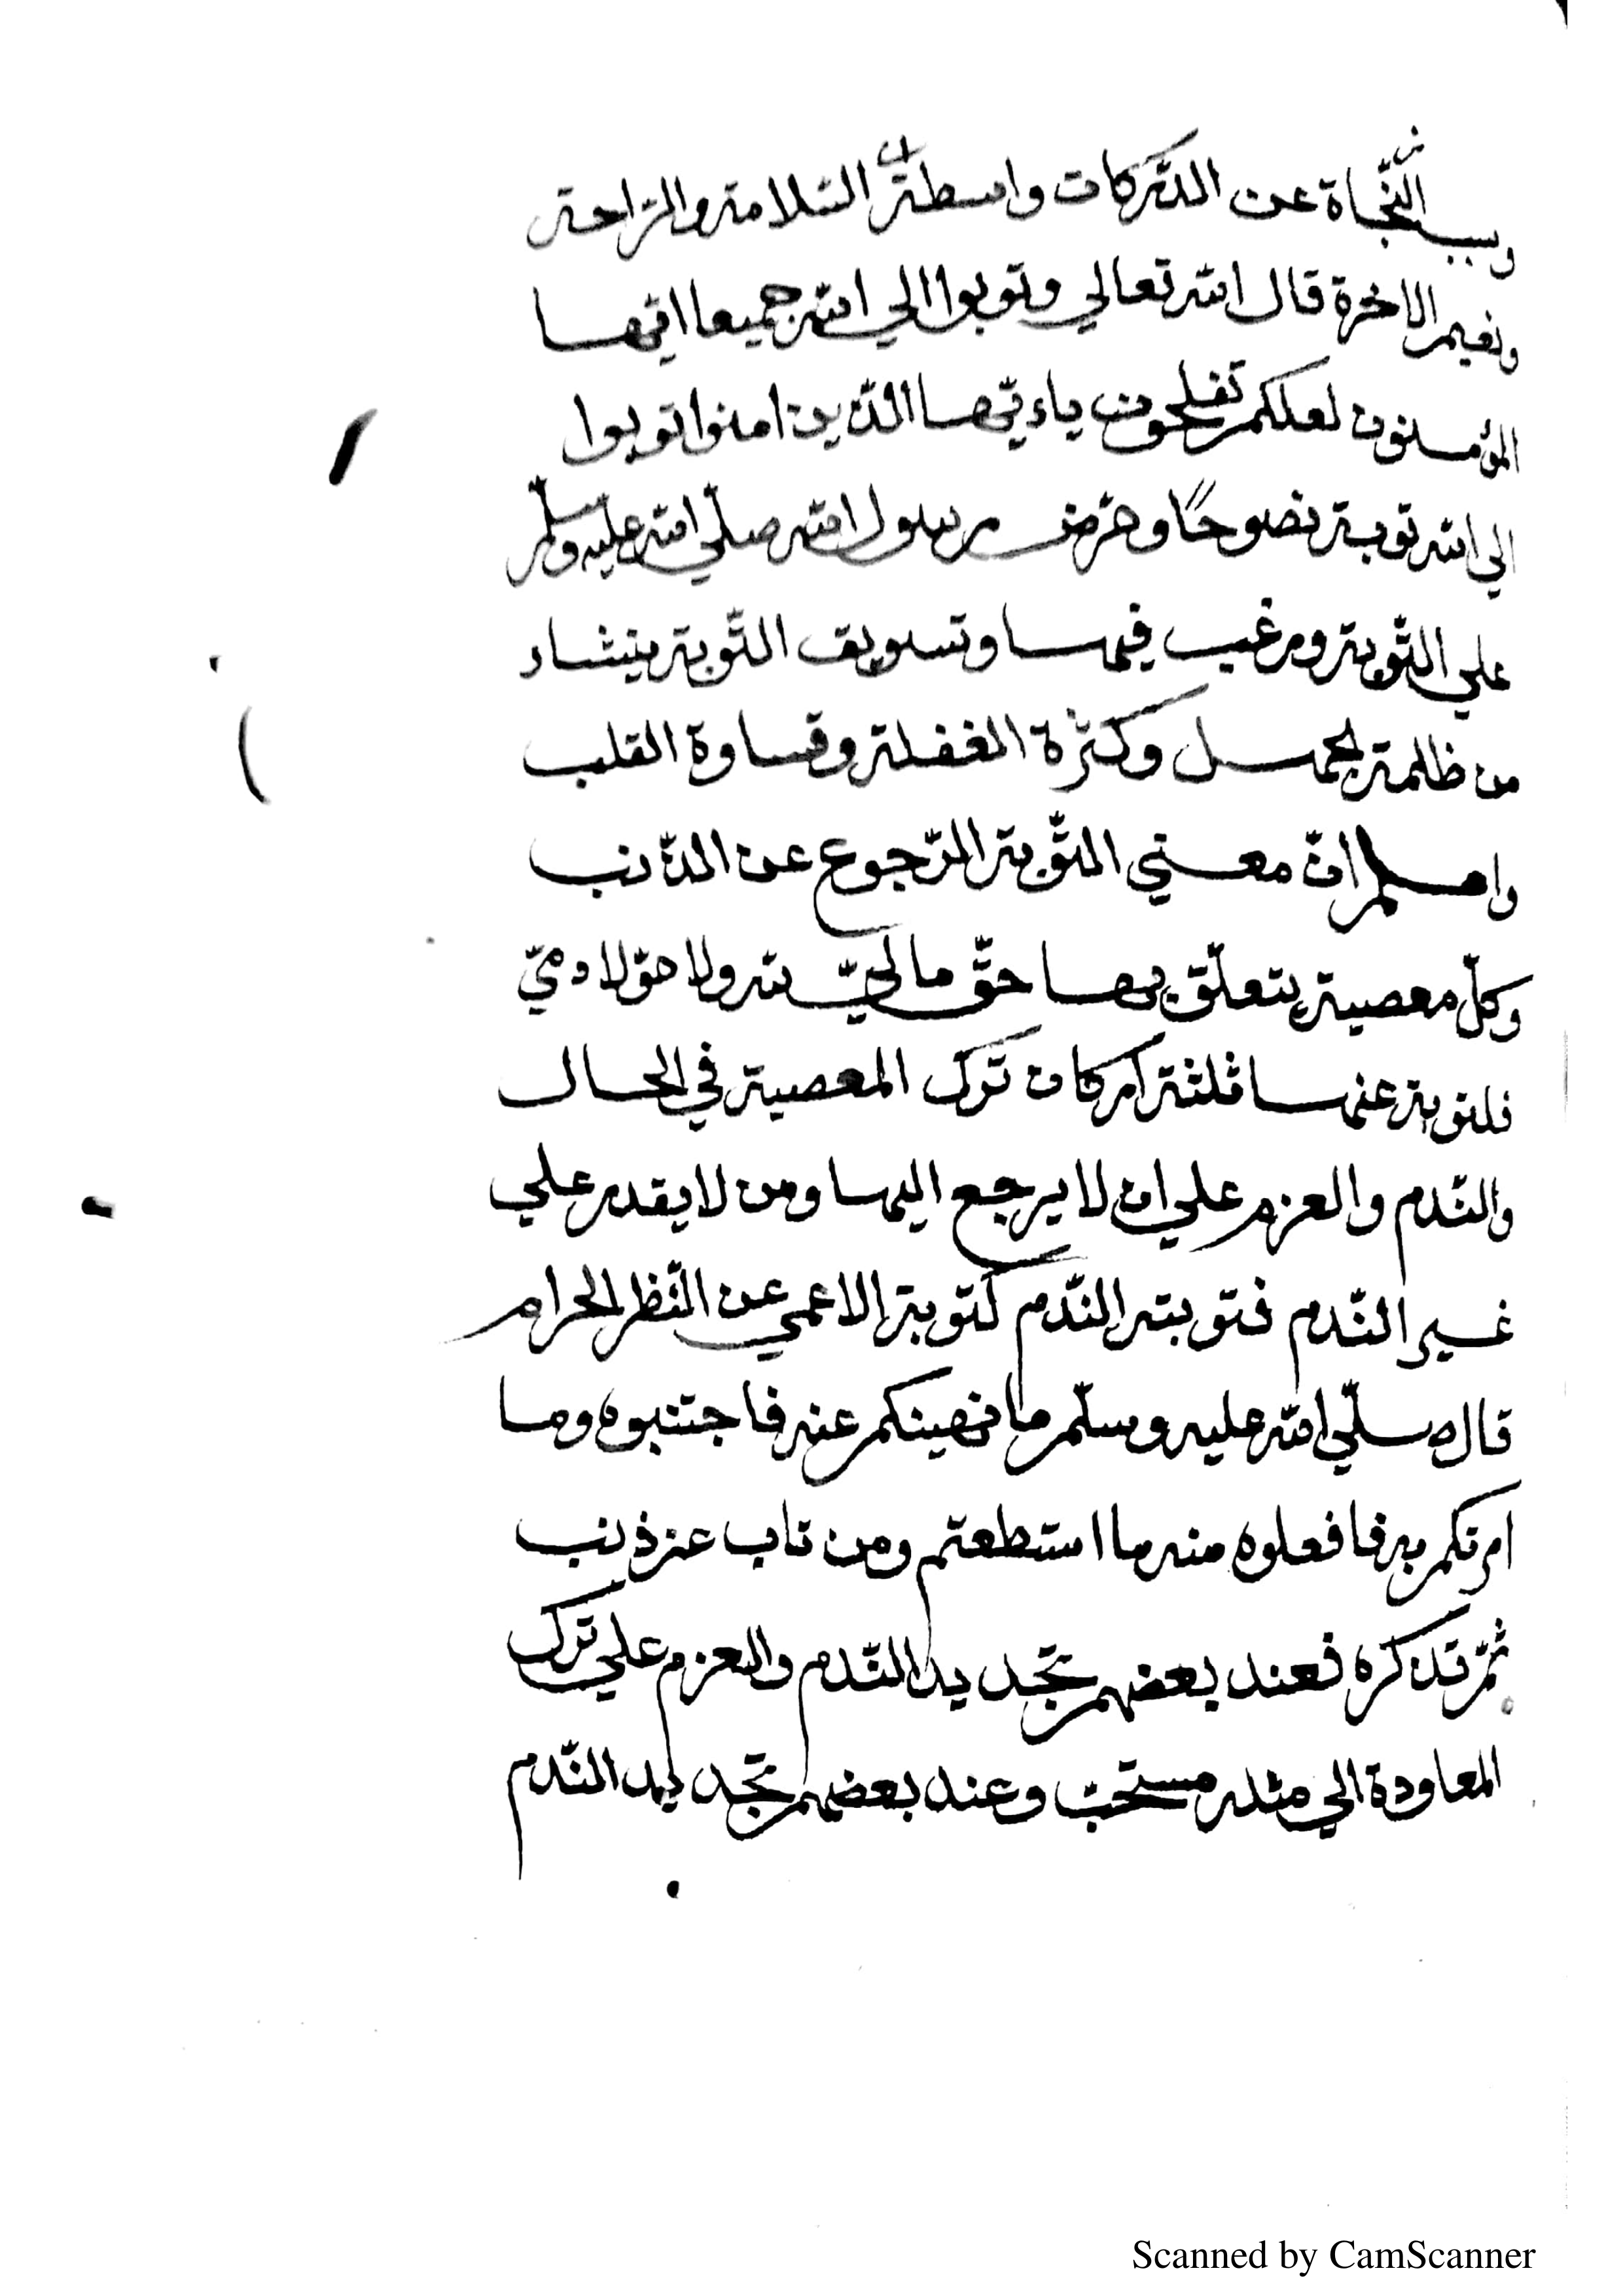 وسبب النّجاة عن الدّركات واسطة السّلامة والرّاحة
ونعيم الاخرة قال الله تعالي وتوبوا الي الله جميعا ايّها
المؤمنون لعلكم تفلحون ياءيّها الّذين امنوا توبوا
الي الله توبة نصوحًا وحرّض رسول الله صلّي الله عليه وسلّم
علي التّوبة ورغب فيها وتسويف التّوبة ينشاء
من ظلمة الجهل وكثرة الغفلة وقساوة القلب
واعلم انّ معني التّوبة الرّجوع عن الذّنب
وكلّ معصية يتعلّق بها حقّ ماليّ لله ولا حقّ لادميّ
فلتوبة عنها ثلثة اركان ترك المعصية في الحال
والنّدم والعزم علي ان لا يرجع اليها ومن لا يقدر علي
غير النّدم فتوبته النّدم كتوبة الاعمي عن النّظر الحرام
قال صلّي الله عليه وسلّم ما نهيتكم عنه فاجتنبوه وما
امرتكم به فافعلوه منه ما استطعتم ومن تاب عن ذنب
ثمّ تذكره فعند بعضهم تجديد النّدم والعزم علي ترك
المعاودة الي مثله مستحبّ وعند بعضهم تجديد النّدم
Scanned by CamScanner